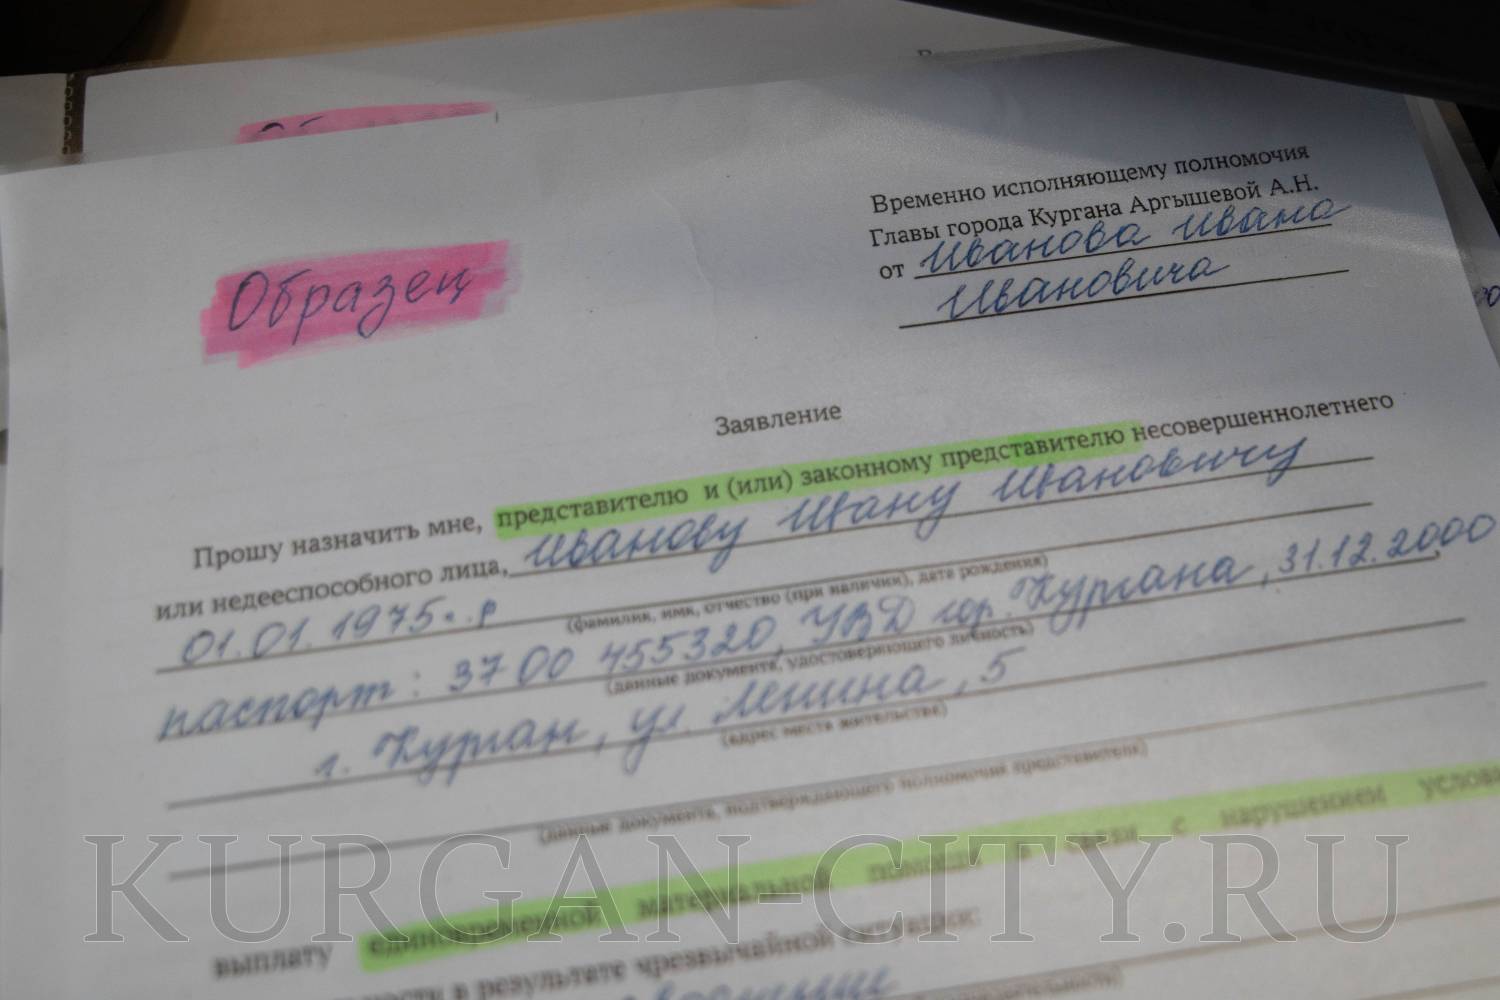 Образец
Временно исполняющему полномочия
Главы города Кургана Аргышевой А.Н.
от Иванова Ивана
Ивановича
Заявление
Прошу назначить мне, представителю и (или) законному представителю несовершеннолетнего
или недееспособного лица, Иванову Ивану Ивановичу
(фамилия, имя, отчество (при наличии), дата рождения)
01.01.1975г.р
паспорт: 37 00 455320, УВД гор. Кургана, 31.12.2000
(данные документа, удостоверяющего личность)
г. Курган, ул. Ленина, 5
(адрес места жительства)
(данные документа, подтверждающего полномочия представителя)
выплату единовременной материальной помощи в связи с нарушением
в результате чрезвычайной ситуации:
KURGAN-CITY.RU